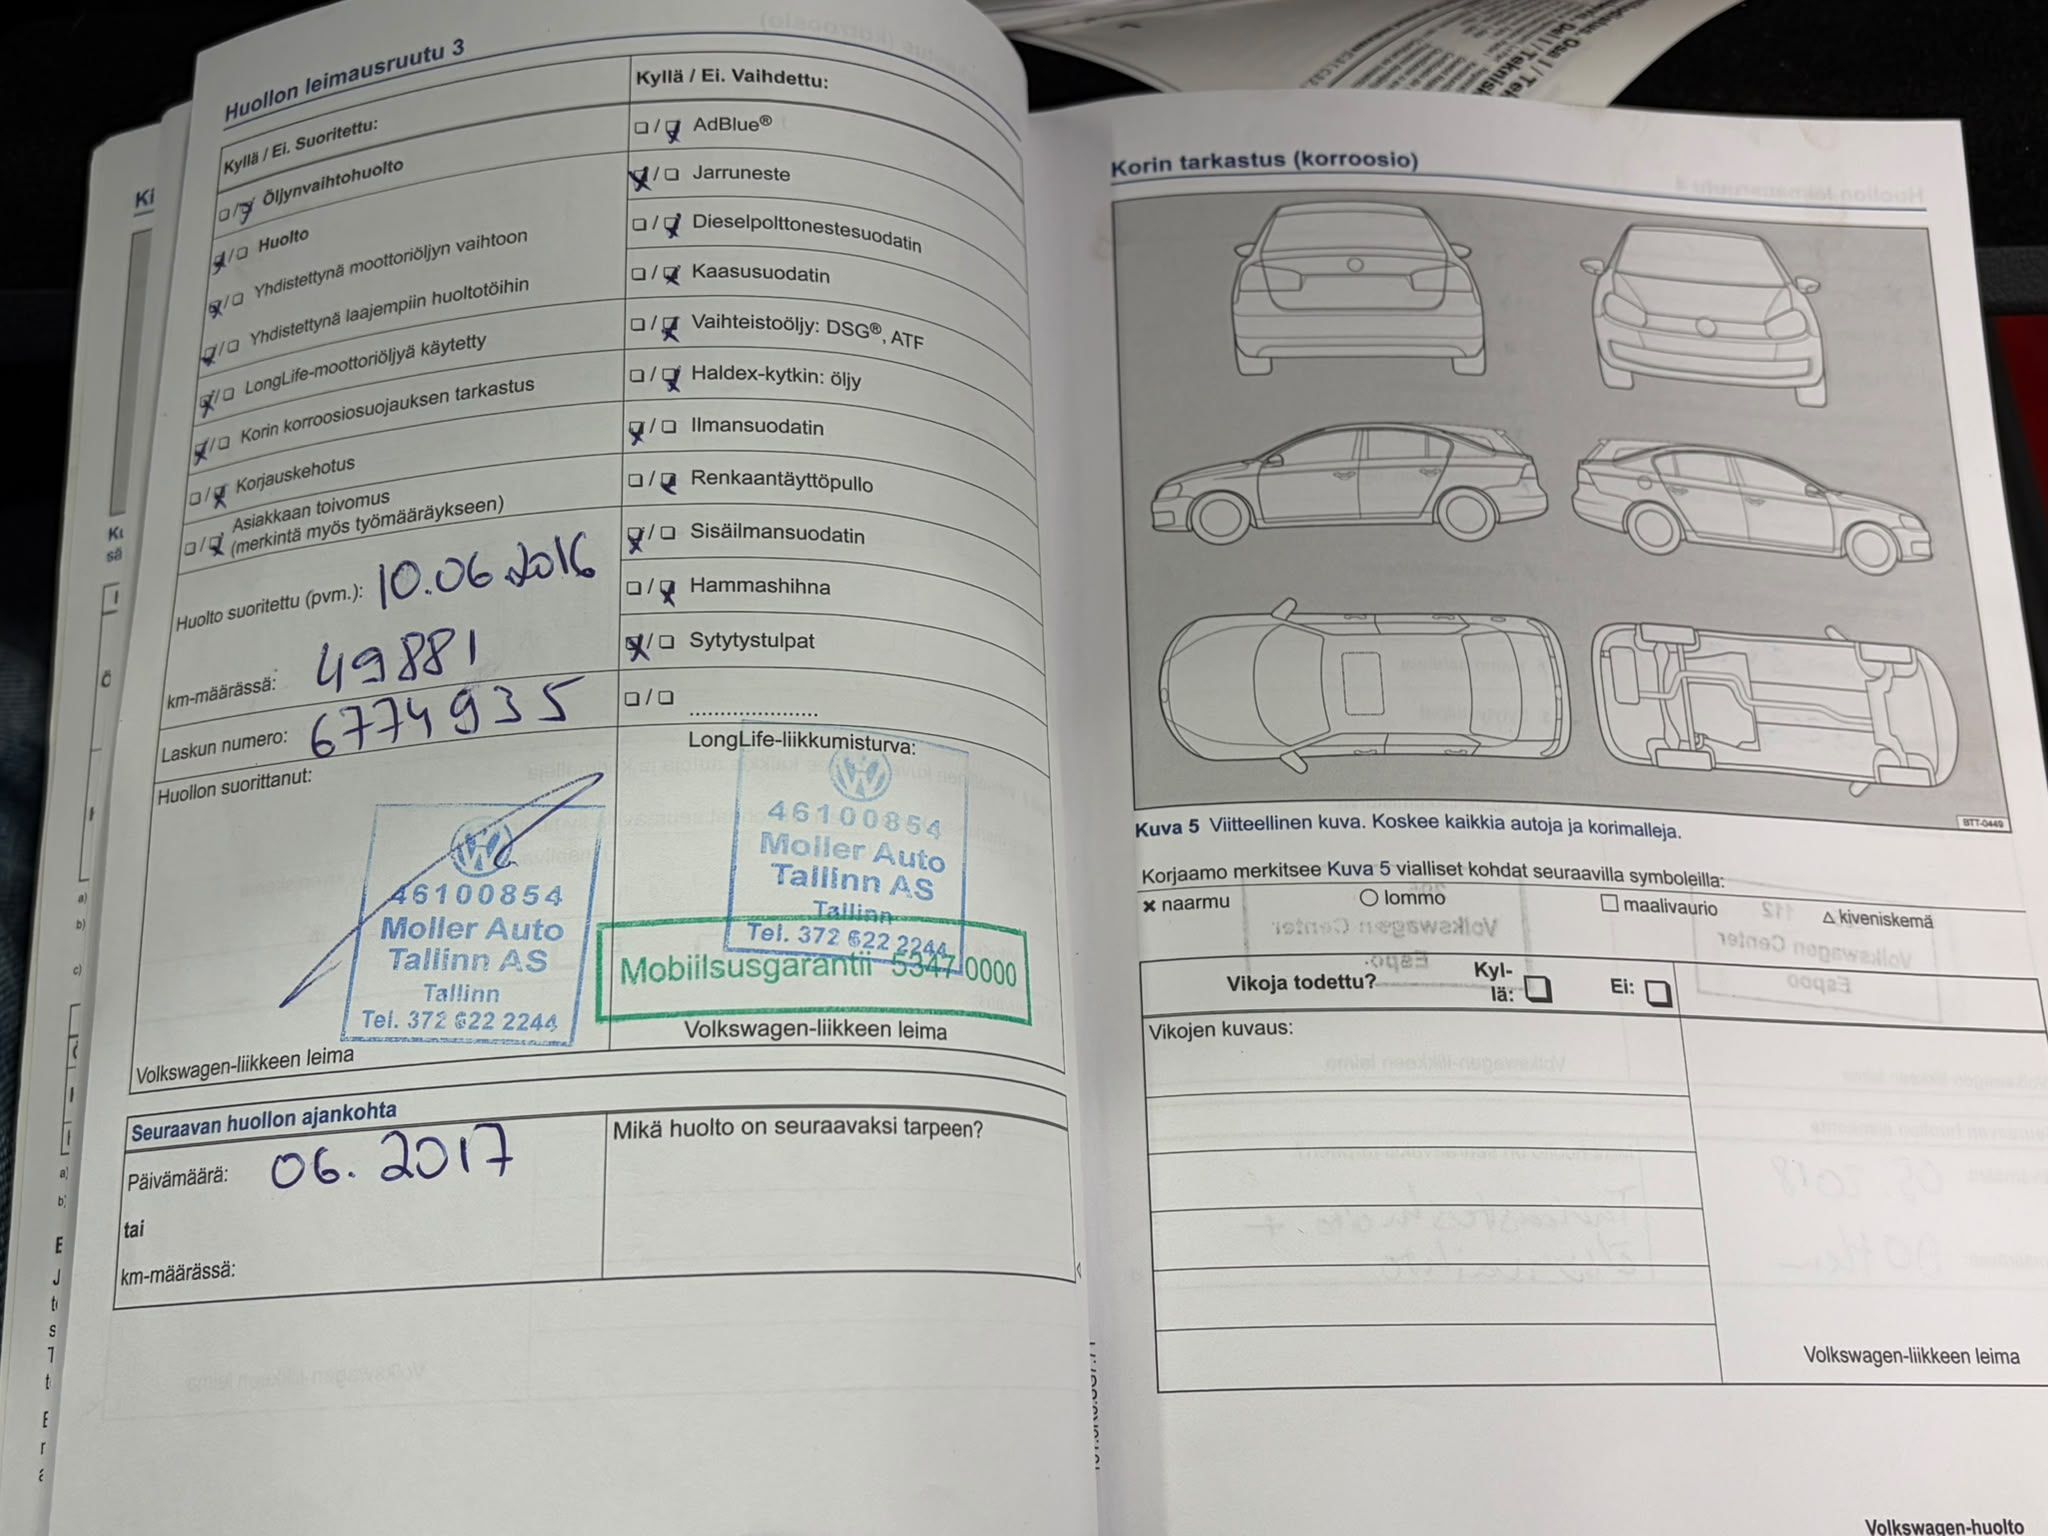 Huollon leimausruutu 3
Kyllä / Ei. Suoritettu:
Öljynvaihtohuolto
Huolto
Yhdistettynä moottoriöljyn vaihtoon
Yhdistettynä laajempiin huoltotöihin
LongLife-moottoriöljyä käytetty
Korin korroosiosuojauksen tarkastus
Korjauskehotus
Asiakkaan toivomus
(merkintä myös työmääräykseen)
Huolto suoritettu (pvm.): 10.06.2016
km-määrässä: 49881
Laskun numero: 6774935
Huollon suorittanut:
46100854
Moller Auto
Tallinn AS
Tallinn
Tel. 372 622 2244
Volkswagen-liikkeen leima
Kyllä / Ei. Vaihdettu:
AdBlue®
Jarruneste
Dieselpolttonestesuodatin
Kaasusuodatin
Vaihteistoöljy: DSG®, ATF
Haldex-kytkin: öljy
Ilmansuodatin
Renkaantäyttöpullo
Sisäilmansuodatin
Hammashihna
Sytytystulpat
....................
LongLife-liikkumisturva:
46100854
Moller Auto
Tallinn AS
Tallinn
Tel. 372 622 2244
Mobiilsusgarantii 5347 0000
Volkswagen-liikkeen leima
Seuraavan huollon ajankohta
Päivämäärä: 06.2017
tai
km-määrässä:
Mikä huolto on seuraavaksi tarpeen?
Korin tarkastus (korroosio)
BTT-0449
Kuva 5 Viitteellinen kuva. Koskee kaikkia autoja ja korimalleja.
Korjaamo merkitsee Kuva 5 vialliset kohdat seuraavilla symboleilla:
× naarmu ○ lommo □ maalivaurio △ kiveniskemä
Vikoja todettu? Kyl-
lä: Ei:
Vikojen kuvaus:
Volkswagen-liikkeen leima
Volkswagen-huolto